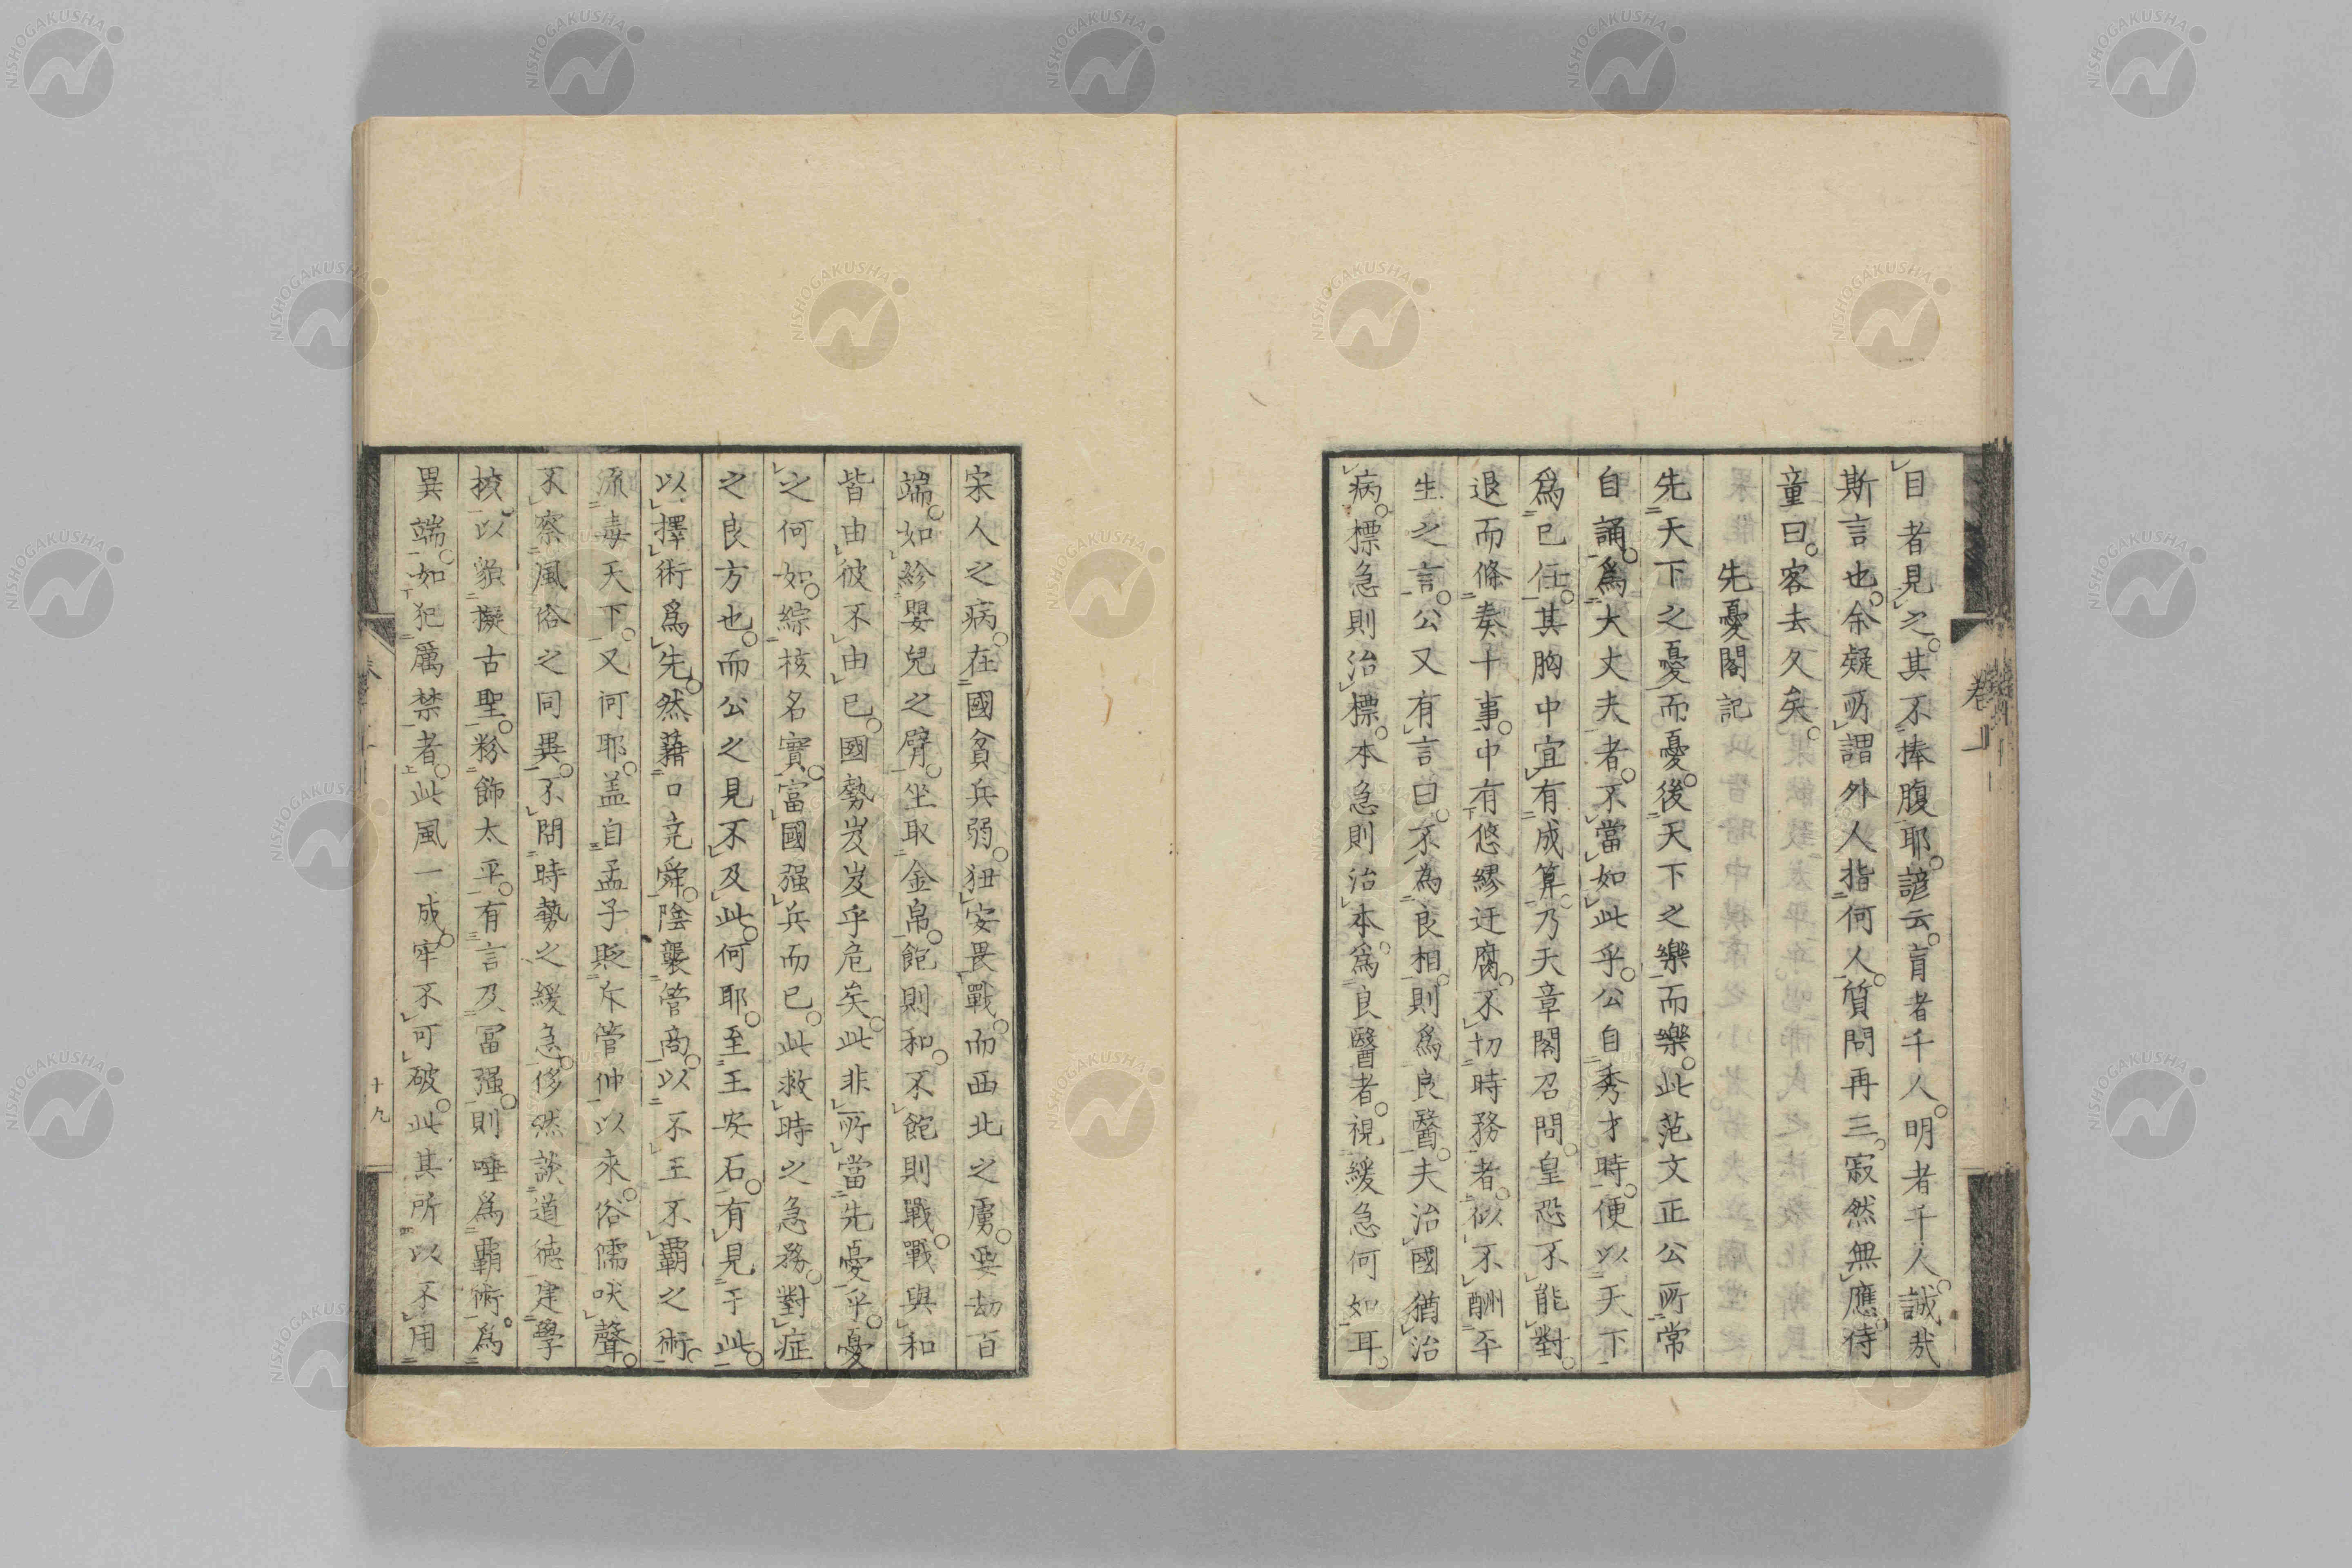 目者見之。其不捧腹耶。諺云。盲者千人。明者千人。誠哉
斯言也。余疑所謂外人指何人。質問再三。寂然無應。侍
童曰。客去久矣。
先憂閣記
先天下之憂而憂。後天下之樂而樂。此范文正公所常
自誦。爲大丈夫者。不當如此乎。公自秀才時。便以天下
爲己任。其胸中宜有成算。乃天章閣召問。皇恐不能對。
退而條奏十事。中有悠繆迂腐。不切時務者。似不酬平
生之言。公又有言曰。不為良相。則爲良醫。夫治國猶治
病。標急則治標。本急則治本。爲良醫者。視緩急何如耳。
宋人之病。在國貧兵弱。狃安畏戰。而西北之虜。要劫百
端。如紾嬰兒之臂。坐取金帛。飽則和。不飽則戰。戰與和
皆由彼不由已。國勢岌岌乎危矣。此非所當先憂乎。憂
之何如。綜核名實。富國强兵而已。此救時之急務。對症
之良方也。而公之見不及此。何耶。至王安石。有見于此。
以擇術爲先。然藉口堯舜。陰襲管商。以不王不霸之術。
流毒天下。又何耶。盖自孟子貶斥管仲以來。俗儒吠聲。
不察風俗之同異。不問時勢之緩急。侈然談道德建學
校。以貌擬古聖。粉飾太平。有言及冨强。則唾爲霸術。爲
異端。如犯厲禁者。此風一成。牢不可破。此其所以不用
卷一
十九
NISHOGAKUSHA